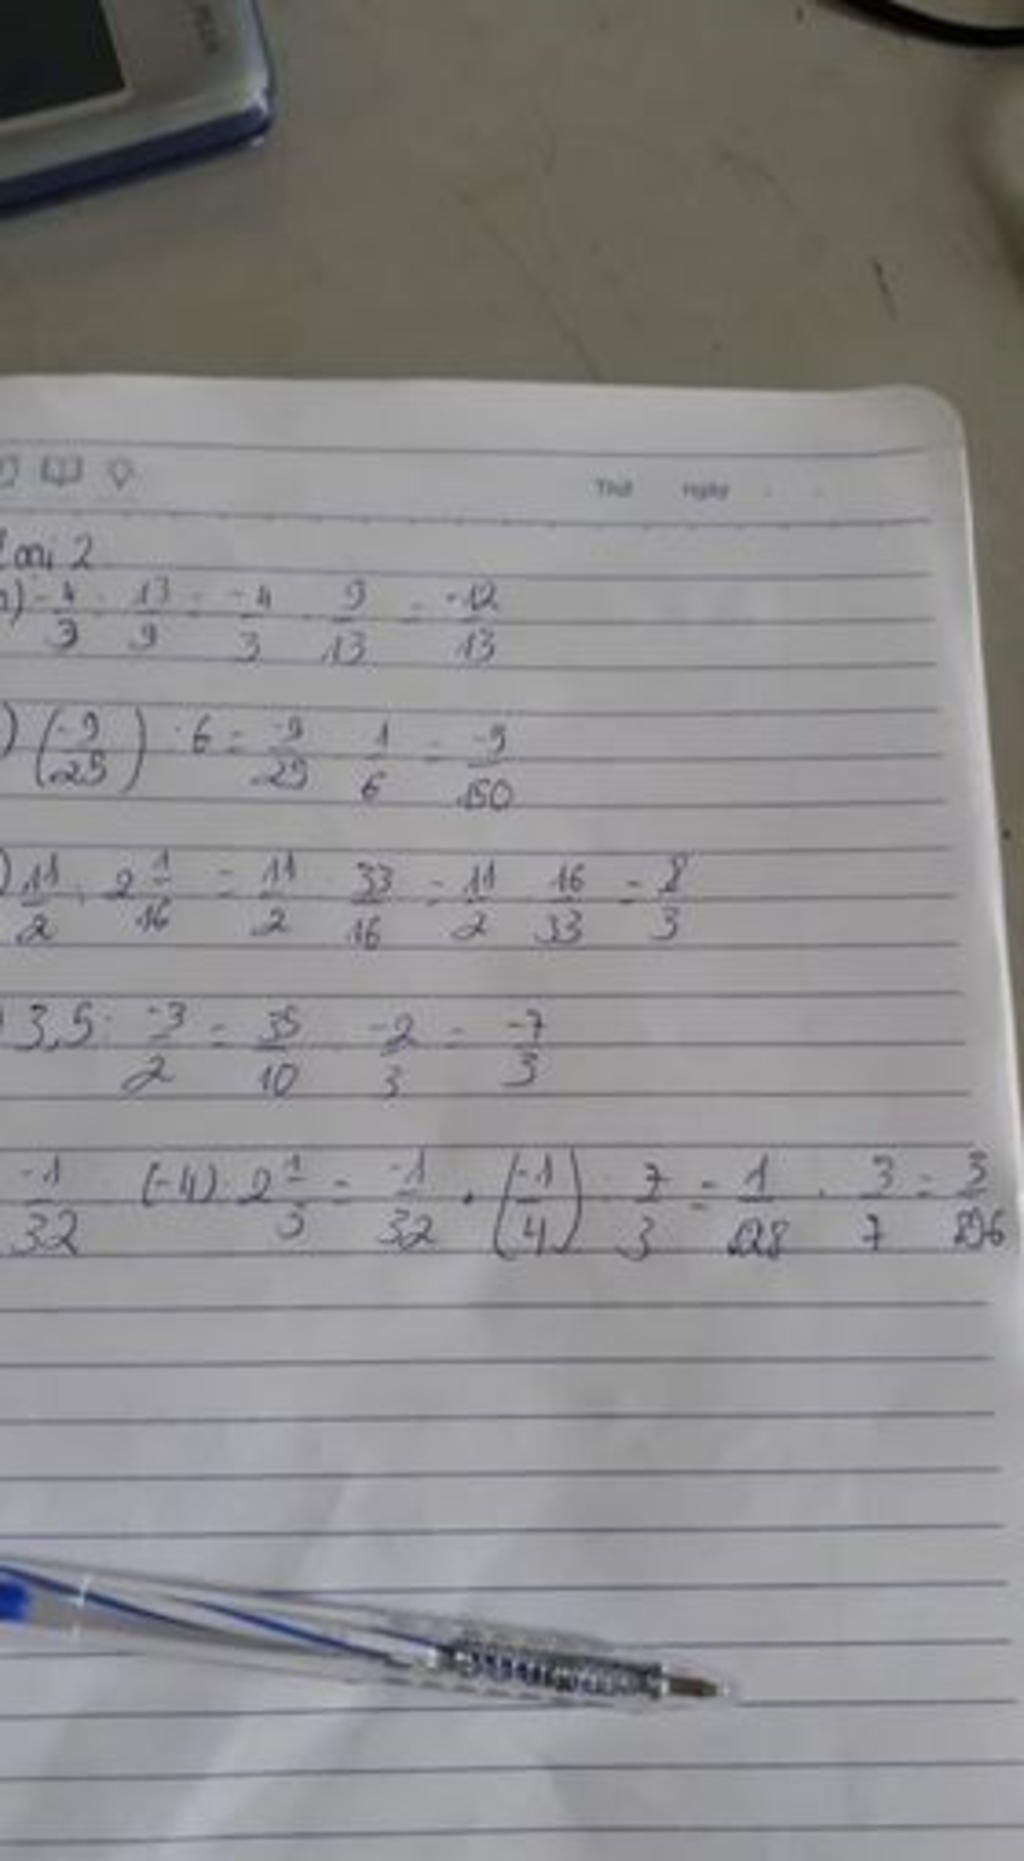 Thứ ngày
2
-4/3 : 13/9 = -4/3 . 9/13 = -12/13
) (-9/25) : 6 = -9/25 . 1/6 = -9/150
) 11/2 : 2 1/16 = 11/2 : 33/16 = 11/2 . 16/33 = 8/3
) 3,5 : -3/2 = 35/10 . -2/3 = -7/3
-1/32 : (-4) : 2 1/3 = -1/32 . (-1/4) : 7/3 = 1/128 . 3/7 = 3/896